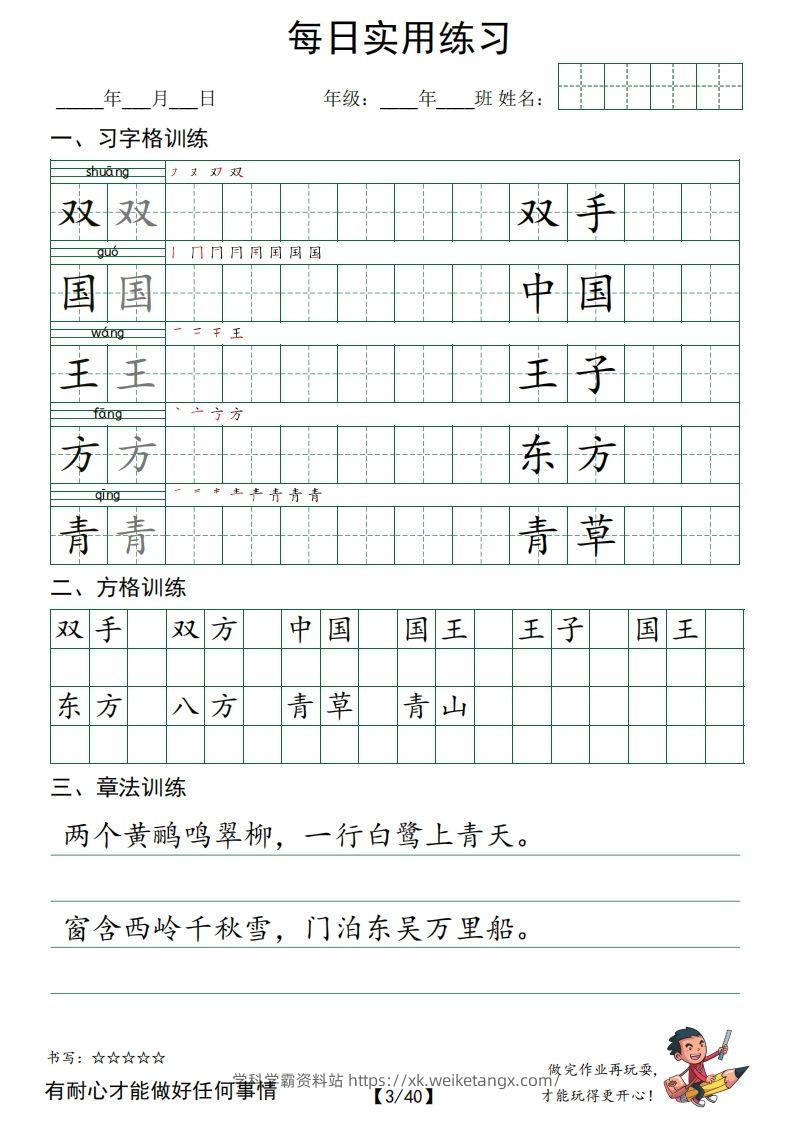 每日实用练习
_____年___月___日 年级：____年____班 姓名：
一、习字格训练
shuāng
双 双 双 手
guó
国 国 中 国
wáng
王 王 王 子
fāng
方 方 东 方
qīng
青 青 青 草
二、方格训练
双 手 双 方 中 国 国 王 王 子 国 王
东 方 八 方 青 草 青 山
三、章法训练
两个黄鹂鸣翠柳，一行白鹭上青天。
窗含西岭千秋雪，门泊东吴万里船。
书写：☆☆☆☆☆
有耐心才能做好任何事情
学科学霸资料站 https://xk.weiketangx.com/
【3/40】
做完作业再玩耍，
才能玩得更开心！